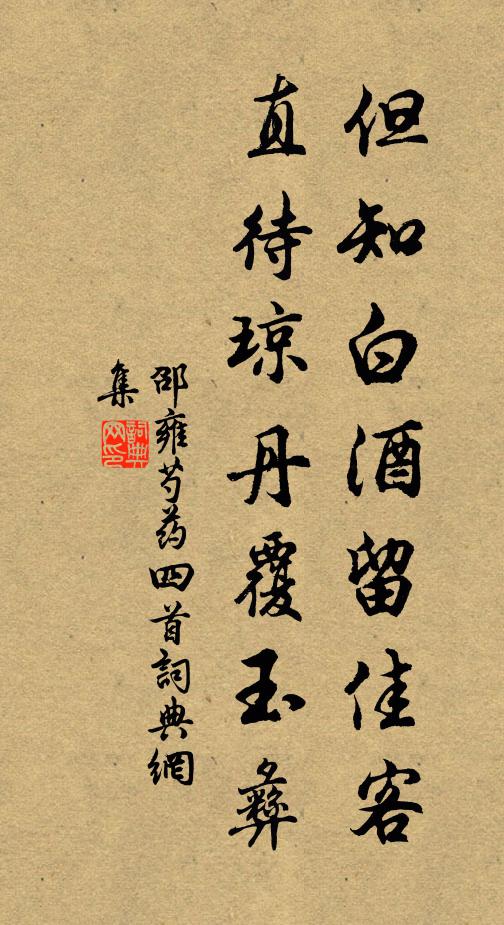 但知白酒留佳客
直待琼丹覆玉彝
邵雍芍药四首詞典網
集
詞典
网印